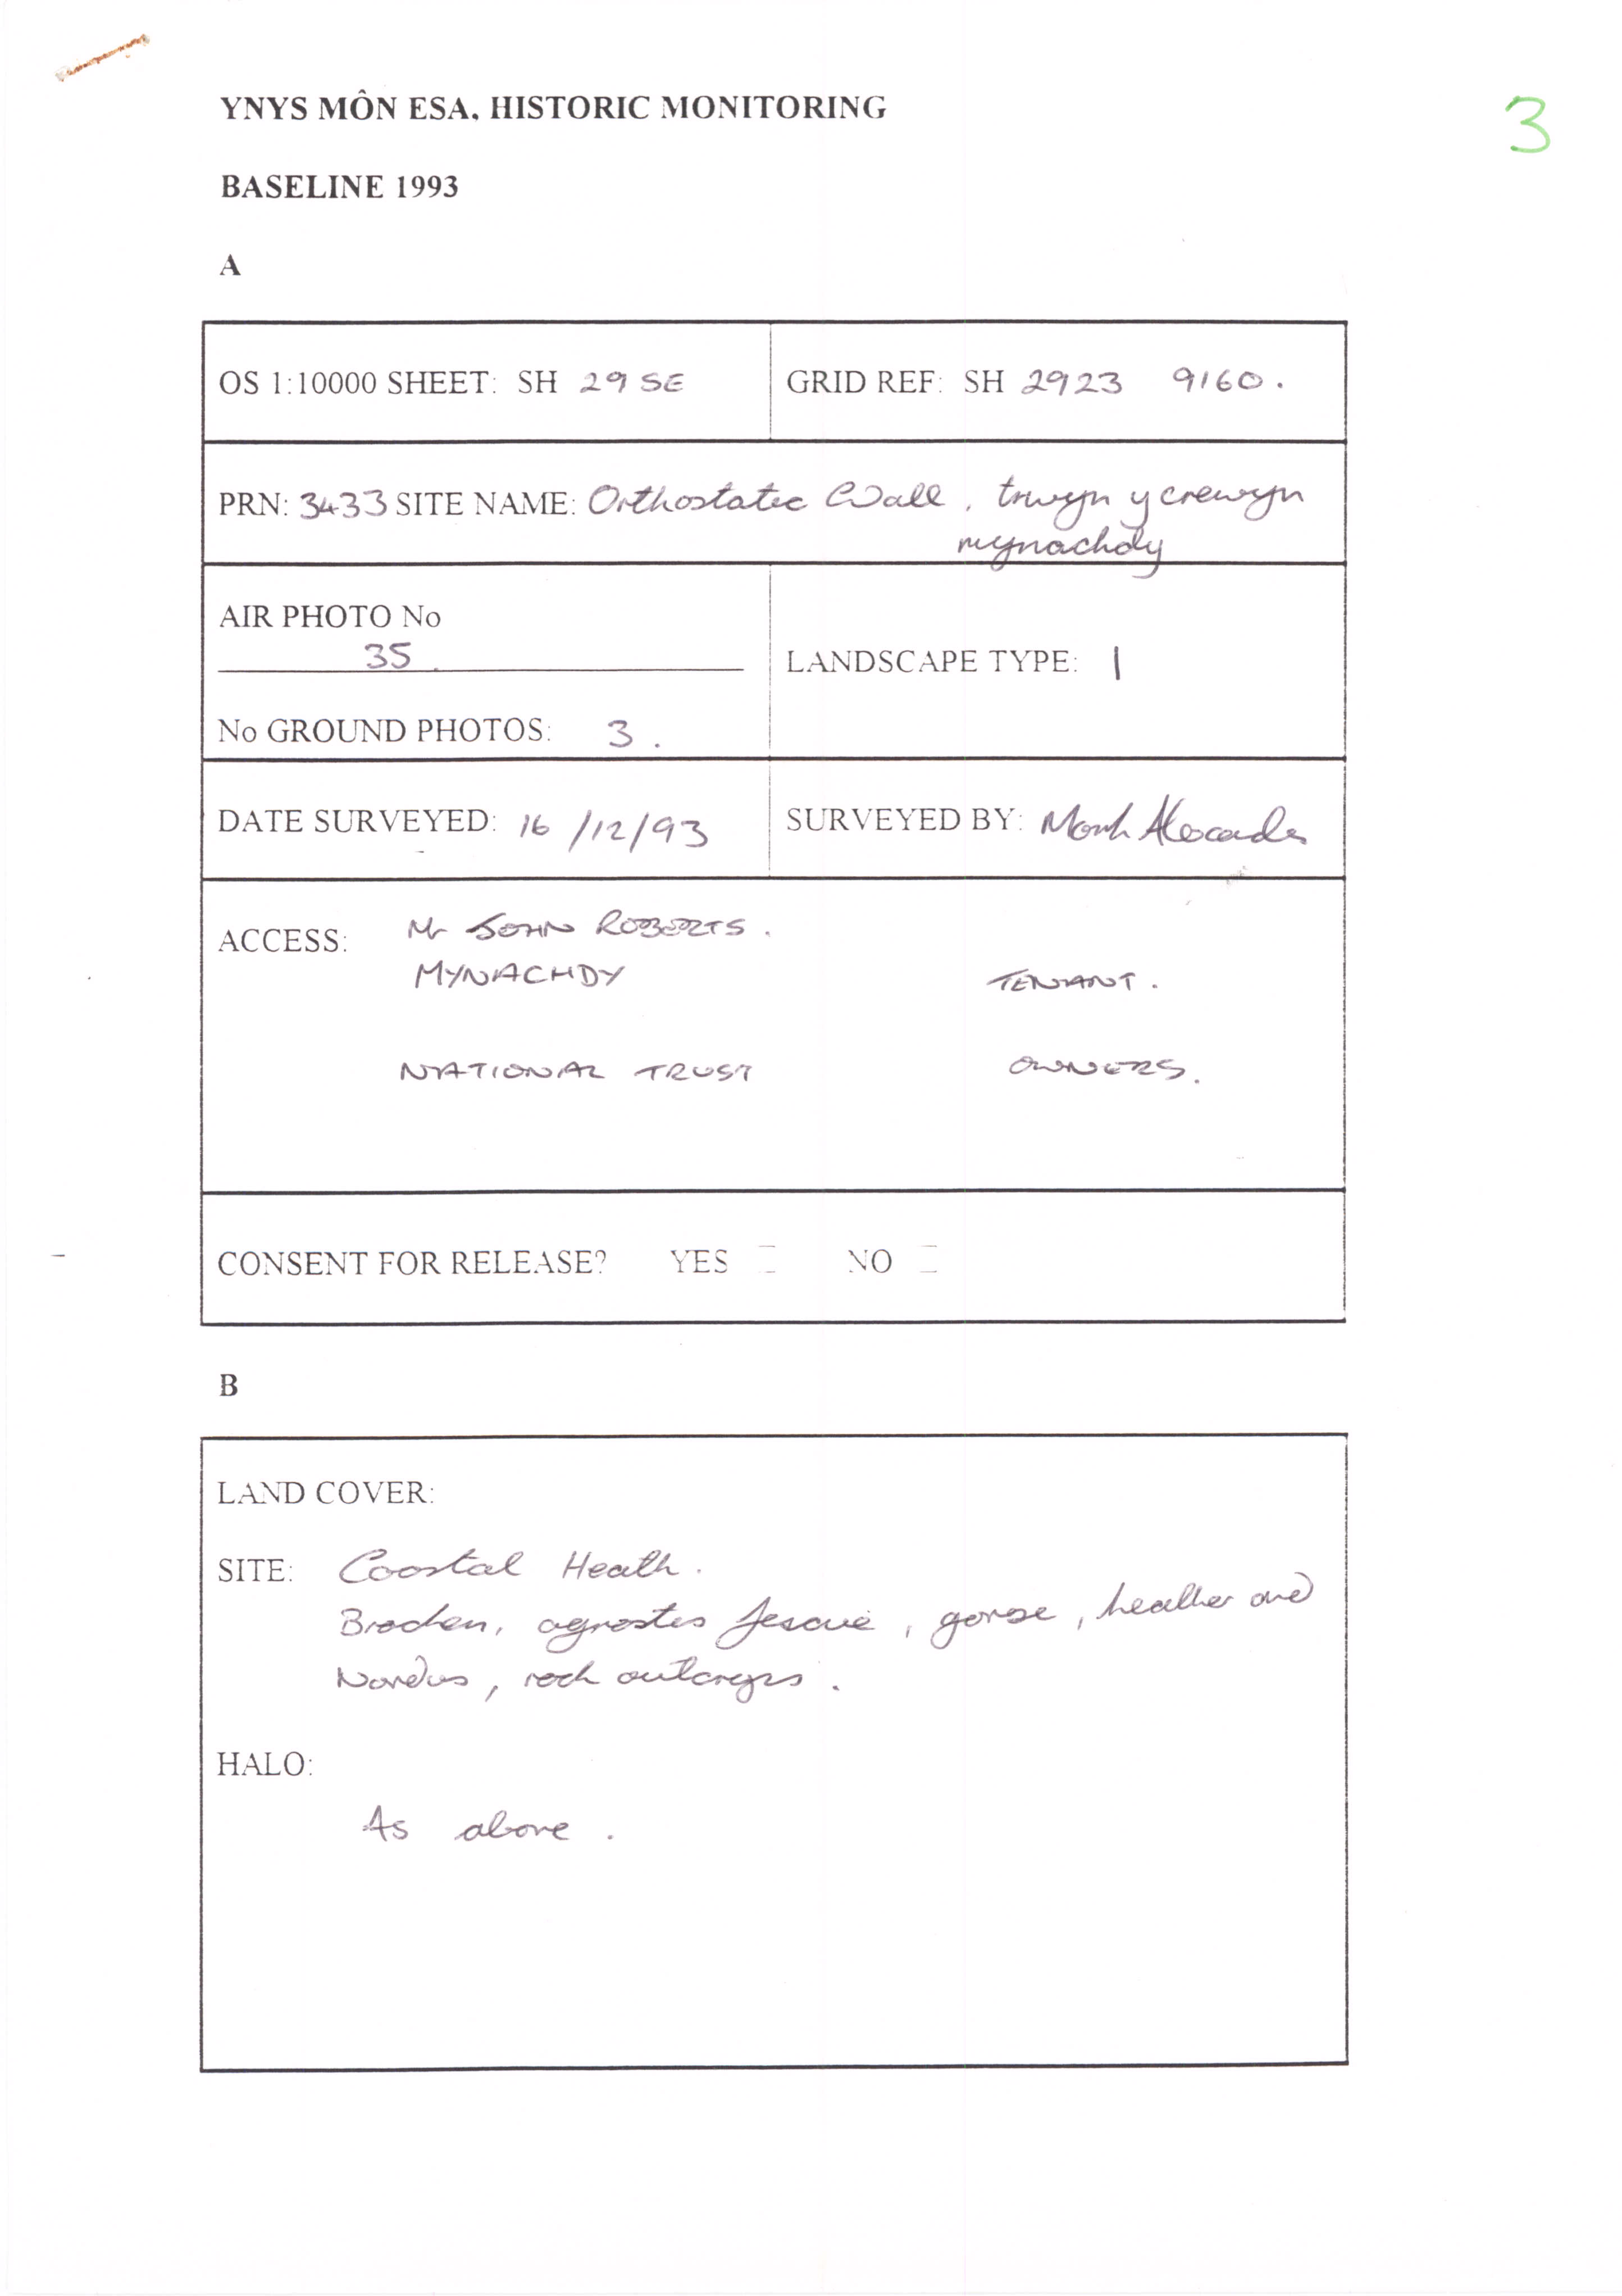 3
YNYS MÔN ESA. HISTORIC MONITORING
BASELINE 1993
A
OS 1:10000 SHEET: SH 29 SE
GRID REF: SH 2923 9160.
PRN: 3433 SITE NAME: Orthostatic Wall, trwyn y crewyn
mynachdy
AIR PHOTO No
35.
LANDSCAPE TYPE: 1
No GROUND PHOTOS: 3.
DATE SURVEYED: 16/12/93
SURVEYED BY: Mark Alexander
ACCESS: Mr JOHN ROBERTS.
MYNACHDY TENANT.
NATIONAL TRUST OWNERS.
CONSENT FOR RELEASE? YES NO
B
LAND COVER:
SITE: Coastal Heath.
Bracken, agrostis fescue, gorse, heather and
Nardus, rock outcrops.
HALO:
As above.